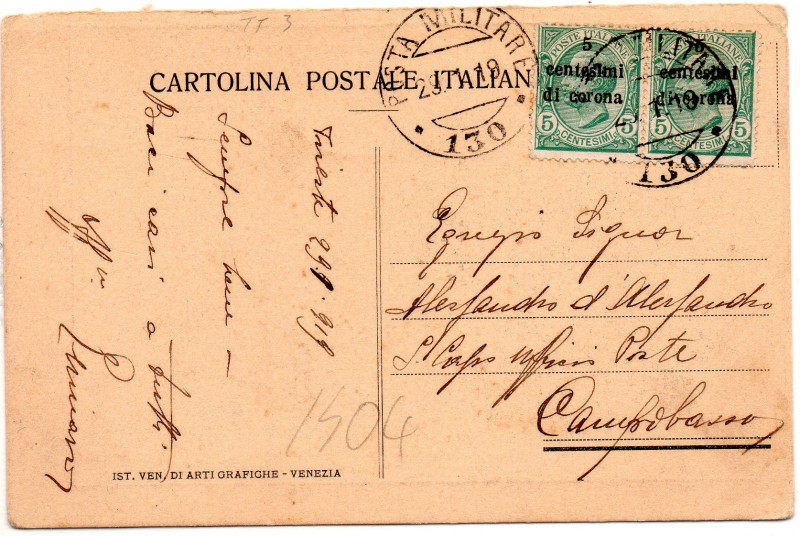 TT 3
CARTOLINA POSTALE ITALIAN
POSTA MILITARE
29.1.19
130
POSTE ITALIANE
5
centesimi
di corona
5 CENTESIMI 5
5
centesimi
di corona
5 CENTESIMI 5
130
Trieste 29 1 919
Sempre bene –
Baci cari a tutti
Aff
Egregio Signor
Alessandro d'Alessandro
Capo Ufficio Poste
Campobasso
1404
IST. VEN. DI ARTI GRAFICHE - VENEZIA